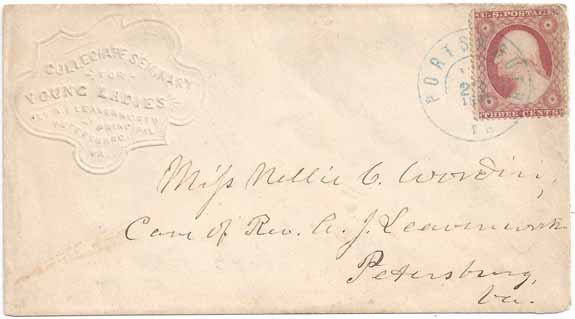 COLLEGIATE SEMINARY
FOR
YOUNG LADIES
REV. A.J. LEAVENWORTH
PRINCIPAL
PETERSBURG
VA.
PORTS
VA
U.S. POSTAGE
THREE CENTS
Miss Nellie C. Wordin,
Care of Rev. A. J. Leavenworth
Petersburg,
Va.